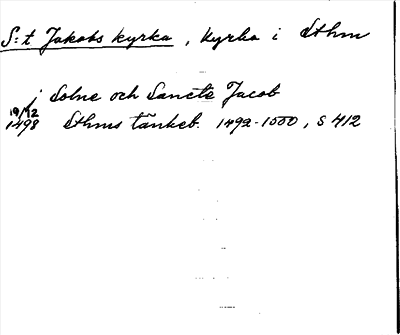 S:t Jakobs kyrka, kyrka i Sthm
i Solne och Sancte Jacob
19/12
1498 Sthms tänkeb. 1492-1500, S 412